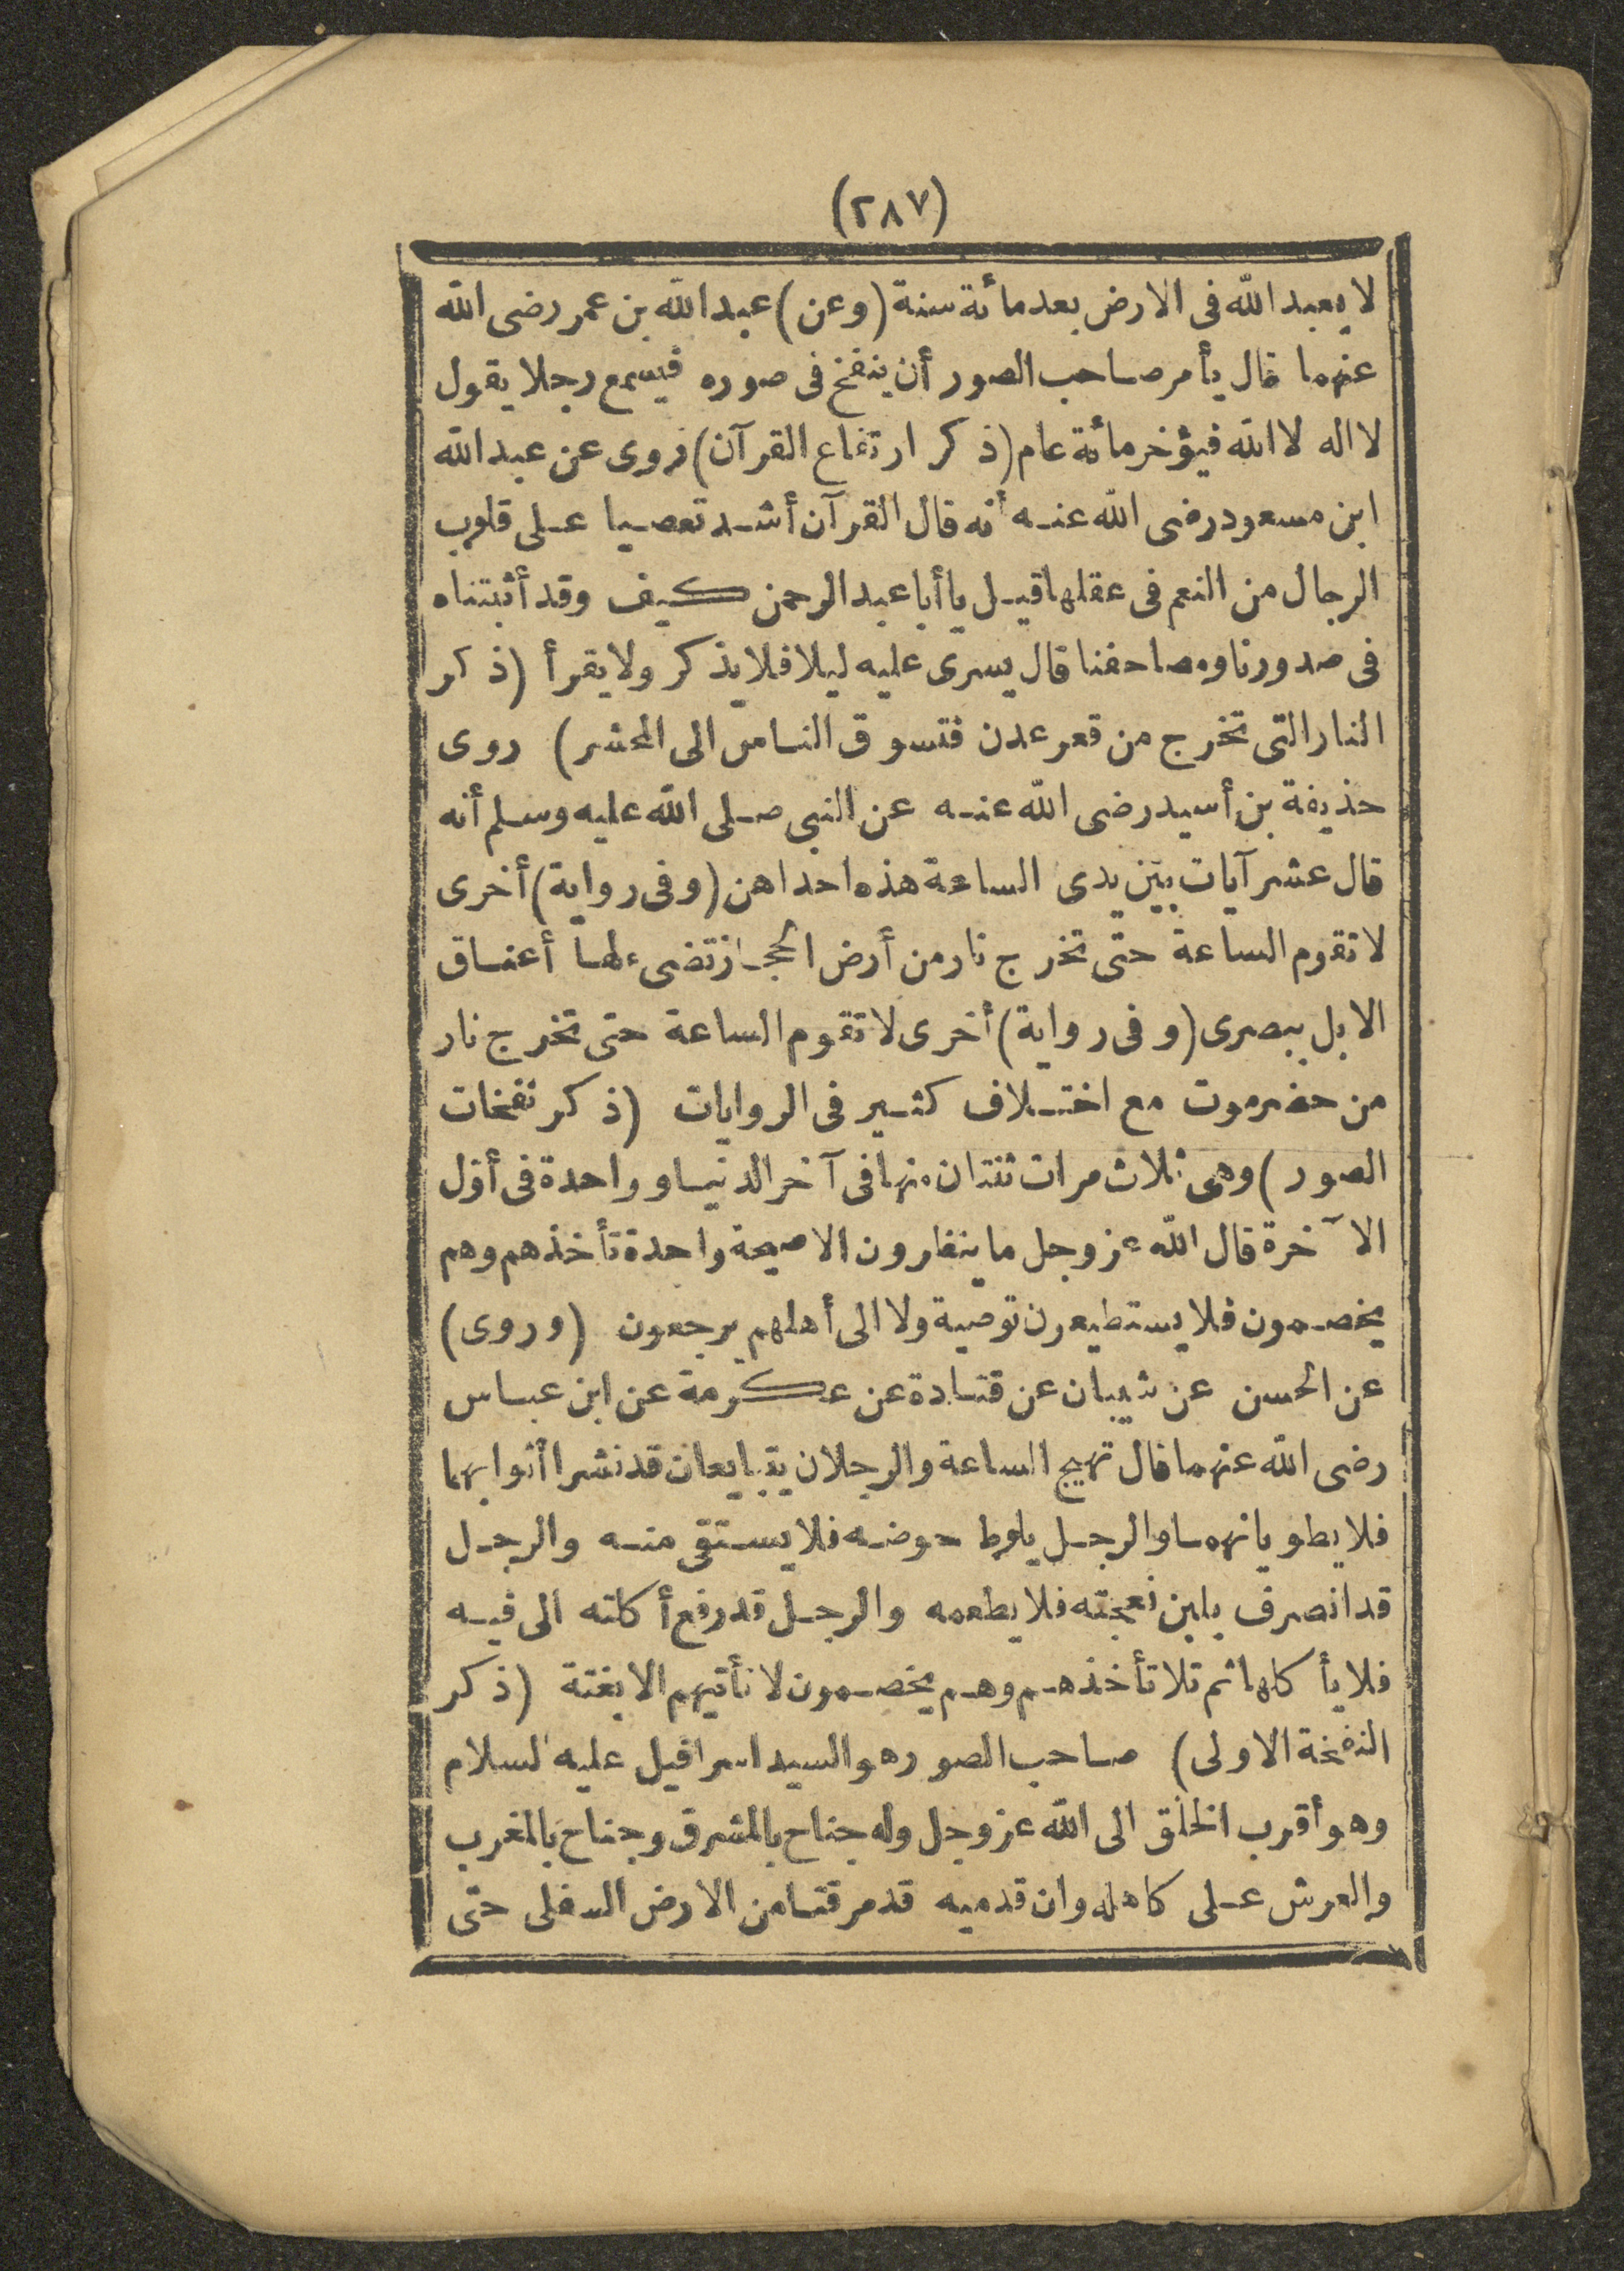 (٢٨٧)
لا يعبد الله فى الارض بعد مائة سنة (وعن) عبد الله بن عمر رضى الله
عنهما قال يأمر صاحب الصور أن ينفخ فى صوره فيسمع رجلا يقول
لا اله لا الله فيؤخر مائة عام (ذكر ارتفاع القرآن) فروى عن عبد الله
ابن مسعود رضى الله عنه أنه قال القرآن أشد تعصيا على قلوب
الرجال من النعم فى عقلها قيل يا أبا عبد الرحمن كيف وقد أثبتناه
فى صدورنا ومصاحفنا قال يسرى عليه ليلا فلا يذكر ولا يقرأ (ذكر
النار التى تخرج من قعر عدن فتسوق الناس الى المحشر) روى
حذيفة بن أسيد رضى الله عنه عن النبى صلى الله عليه وسلم أنه
قال عشر آيات بين يدى الساعة هذه احداهن (وفى رواية) أخرى
لا تقوم الساعة حتى تخرج نار من أرض الحجاز تضىء لها أعناق
الابل ببصرى (وفى رواية) أخرى لا تقوم الساعة حتى تخرج نار
من حضرموت مع اختلاف كثير فى الروايات (ذكر نفخات
الصور) وهى ثلاث مرات ثنتان منها فى آخر الدنيا وواحدة فى أول
الآخرة قال الله عز وجل ما ينظرون الا صيحة واحدة تأخذهم وهم
يخصمون فلا يستطيعون توصية ولا الى أهلهم يرجعون (وروى)
عن الحسن عن شيبان عن قتادة عن عكرمة عن ابن عباس
رضى الله عنهما قال تهيج الساعة والرجلان يتبايعان قد نشرا أثوابهما
فلا يطويانهما والرجل يلوط حوضه فلا يستقى منه والرجل
قد انصرف بلبن نعجته فلا يطعمه والرجل قد رفع أكلته الى فيه
فلا يأكلها ثم تلا تأخذهم وهم يخصمون لا تأتيهم الا بغتة (ذكر
النفخة الاولى) صاحب الصور هو السيد اسرافيل عليه السلام
وهو أقرب الخلق الى الله عز وجل وله جناح بالمشرق وجناح بالمغرب
والعرش على كاهله وان قدميه قد مرقتا من الارض السفلى حتى